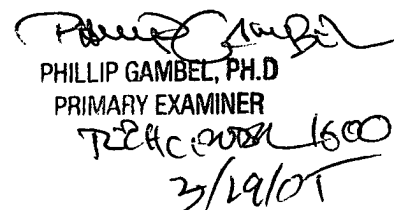 Phillip Gambel
PHILLIP GAMBEL, PH.D
PRIMARY EXAMINER
TECH CENTER 1600
3/19/05